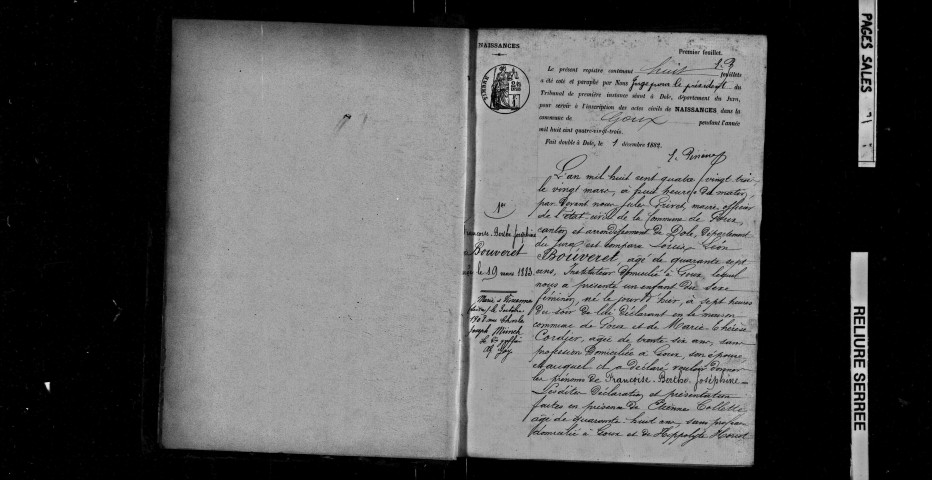 NAISSANCES
Premier feuillet.
Le présent registre contenant huit feuillets
a été coté et paraphé par Nous Juge pour le président du
Tribunal de première instance séant à Dole, département du Jura,
pour servir à l'inscription des actes civils de NAISSANCES dans la
commune de Goux pendant l'année
mil huit cent quatre-vingt-trois.
Fait double à Dole, le 1 décembre 1882.
TIMBRE
1er
Françoise-Berthe Joséphine
Bouveret
née le 19 mars 1883
Mariée à
Joseph
L'an mil huit cent quatre vingt trois
le vingt mars, à huit heures du matin
par devant nous Jules maire, officier
de l'état civil de la commune de Goux,
canton et arrondissement de Dole, département
du Jura est comparu Léon
Bouveret, agé de quarante sept
ans, Instituteur domicilié à Goux, lequel
nous a présenté un enfant du sexe
féminin, né le jour d'hier, à sept heures
du soir de lui déclarant en la maison
commune de Goux et de Marie Thérèse
Cordier, agée de trente six ans, sans
profession domiciliée à Goux, son épouse
Auquel il a déclaré vouloir donner
les prénoms de Françoise-Berthe-Joséphine
Lesdites déclaration et présentation
faites en présence de Etienne Collette
agé de quarante-huit ans, sans profession
domicilié à Goux et de Hippolyte
PAGES SALES
RELIURE SERREE